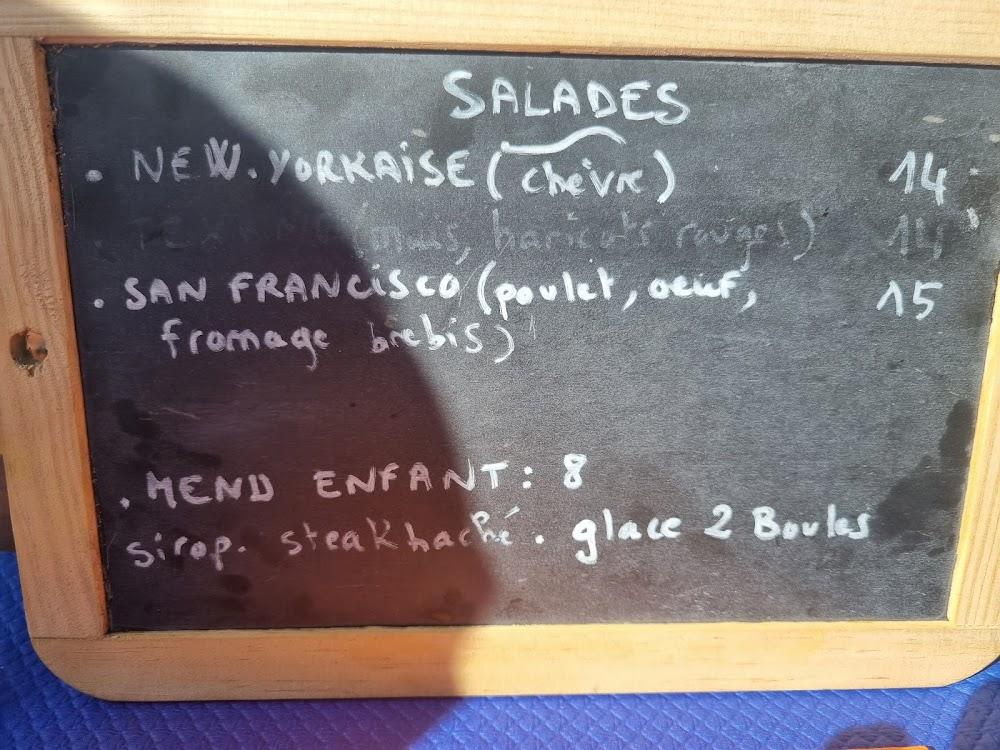 SALADES
. NEW.YORKAISE (chèvre) 14
(maïs, haricots rouges) 14
. SAN FRANCISCO (poulet, oeuf, 15
fromage brebis)
. MENU ENFANT: 8
sirop. steak haché. glace 2 Boules